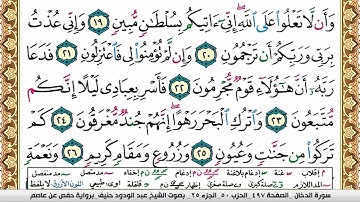 وَأَن لَّا تَعْلُوا۟ عَلَى ٱللَّهِ ۖ إِنِّىٓ ءَاتِيكُم بِسُلْطَـٰنٍ مُّبِينٍ ١٩ وَإِنِّى عُذْتُ
بِرَبِّى وَرَبِّكُمْ أَن تَرْجُمُونِ ٢٠ وَإِن لَّمْ تُؤْمِنُوا۟ لِى فَٱعْتَزِلُونِ ٢١ فَدَعَا
رَبَّهُۥٓ أَنَّ هَـٰٓؤُلَآءِ قَوْمٌ مُّجْرِمُونَ ٢٢ فَأَسْرِ بِعِبَادِى لَيْلًا إِنَّكُم
مُّتَّبَعُونَ ٢٣ وَٱتْرُكِ ٱلْبَحْرَ رَهْوًا ۖ إِنَّهُمْ جُندٌ مُّغْرَقُونَ ٢٤ كَمْ
تَرَكُوا۟ مِن جَنَّـٰتٍ وَعُيُونٍ ٢٥ وَزُرُوعٍ وَمَقَامٍ كَرِيمٍ ٢٦ وَنَعْمَةٍ
سورة الدخان _ الصفحة ٤٩٧ _ الحزب ٥٠ _ الجزء ٢٥ _ بصوت الشيخ عبد الودود حنيف _ برواية حفص عن عاصم